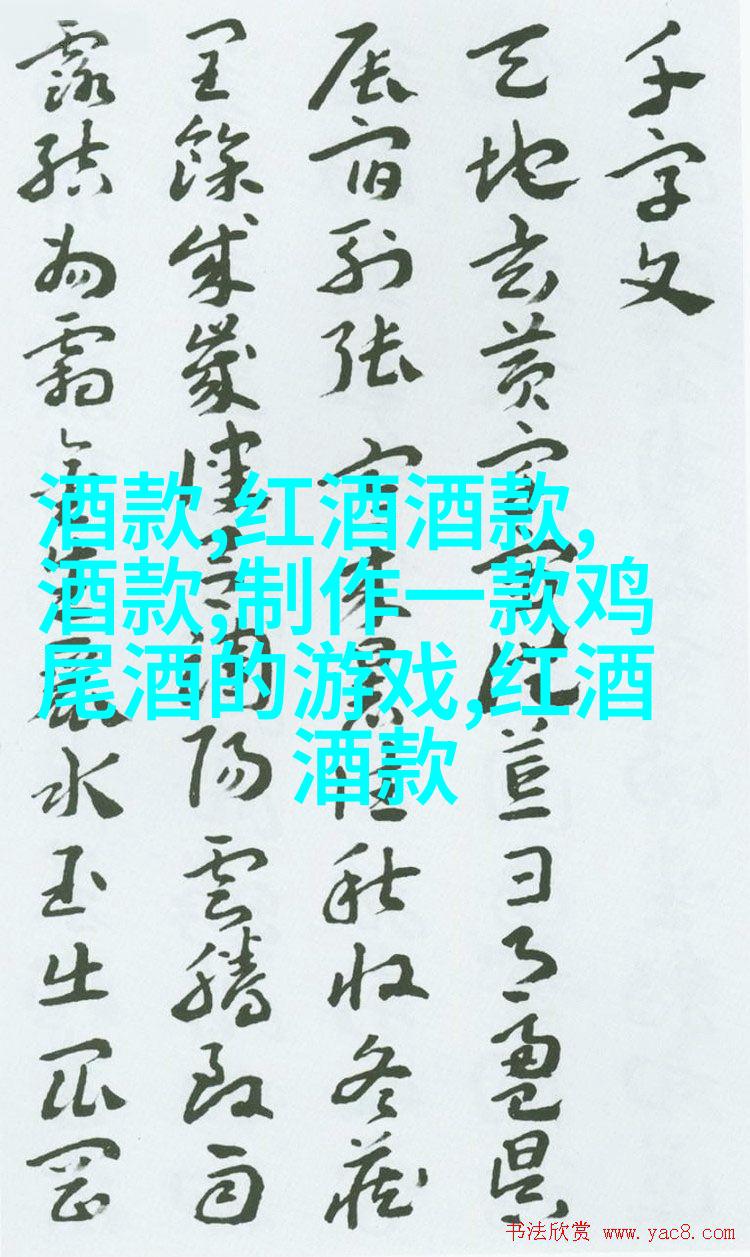 千字文
天地玄黄宇宙洪荒日月盈昃
辰宿列張寒来暑往秋收冬藏
閏餘成歲律呂調陽雲騰致雨
露結為霜金生麗水玉出崑岡
酒款,红酒酒款,
酒款,制作一款鸡
尾酒的游戏,红酒
酒款
书法欣赏 www.yac8.com